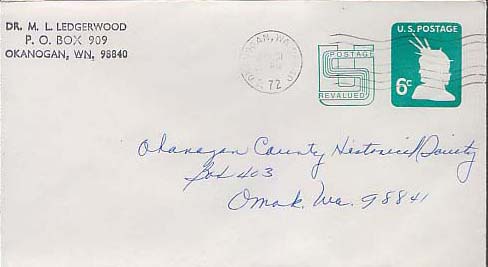 DR. M. L. LEDGERWOOD
P. O. BOX 909
OKANOGAN, WN, 98840
72
POSTAGE
REVALUED
U.S. POSTAGE
6c
Okanogan County Historical Society
Box 403
Omak. Wa. 98841